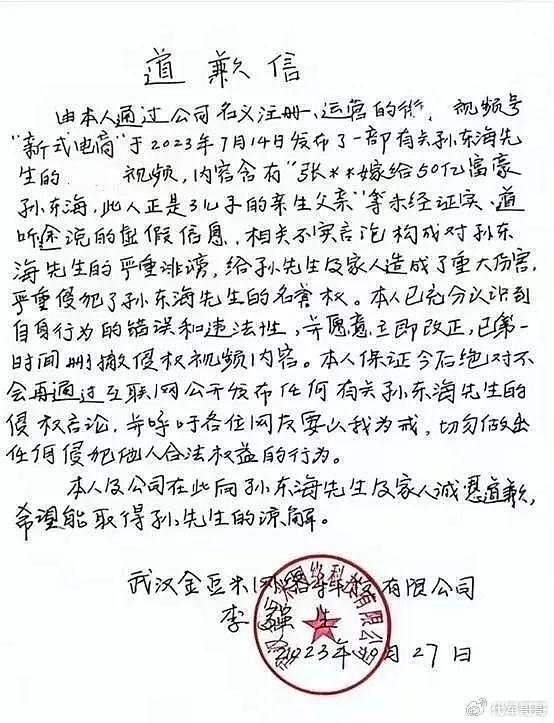 道歉信
由本人通过公司名义注册、运营的微, 视频号
"新式电商"于2023年7月14日发布了一部有关孙东海先
生的 视频，内容含有"张**嫁给50亿富豪
孙东海，此人正是3儿子的亲生父亲"等未经证实、道
听途说的虚假信息，相关不实言论构成对孙东
海先生的严重诽谤，给孙先生及家人造成了重大伤害，
严重侵犯了孙东海先生的名誉权。本人已充分认识到
自身行为的错误和违法性，并愿意立即改正，已第一
时间删撤侵权视频内容。本人保证今后绝对不
会再通过互联网公开发布任何有关孙东海先生的
侵权言论，并呼吁各位网友要以我为戒，切勿做出
任何侵犯他人合法权益的行为。
本人及公司在此向孙东海先生及家人诚恳道歉，
希望能取得孙先生的谅解。
武汉金豆米网络科技有限公司
李强
2023年 月27日